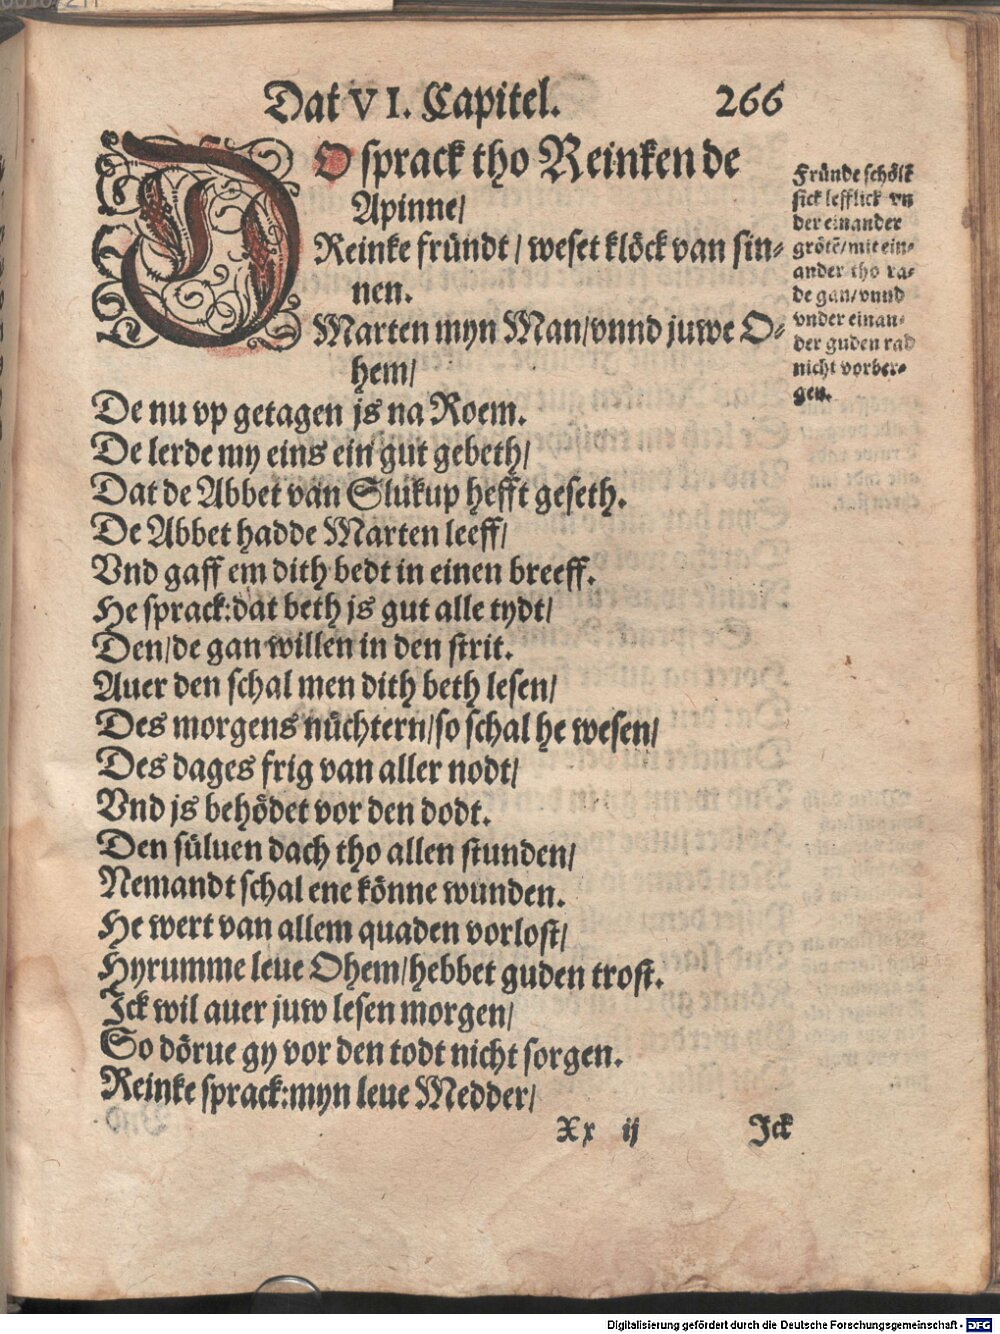 Dat VI. Capitel. 266
DO sprack tho Reinken de
Apinne/
Reinke fründt / weset klöck van sin-
nen.
Marten myn Man/vnnd juwe O-
hem/
De nu vp getagen js na Roem.
De lerde my eins ein gut gebeth/
Dat de Abbet van Slukup hefft geseth.
De Abbet hadde Marten leeff/
Vnd gaff em dith bedt in einen breeff.
He sprack:dat beth js gut alle tydt/
Den/de gan willen in den strit.
Auer den schal men dith beth lesen/
Des morgens nüchtern/so schal he wesen/
Des dages frig van aller nodt/
Vnd js behödet vor den dodt.
Den süluen dach tho allen stunden/
Nemandt schal ene könne wunden.
He wert van allem quaden vorlost/
Hyrumme leue Ohem/hebbet guden trost.
Ick wil auer juw lesen morgen/
So dörue gy vor den todt nicht sorgen.
Reinke sprack:myn leue Medder/
Xx ij Ick
Fründe schölē
sick lefflick vn
der einander
grötē/mit ein-
ander tho ra-
de gan/vnnd
vnder einan-
der guden rad
nicht vorber-
gen.
Digitalisierung gefördert durch die Deutsche Forschungsgemeinschaft - DFG